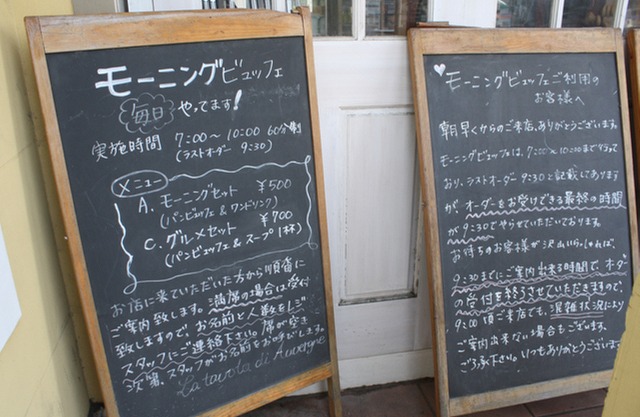 モーニングビュッフェ
毎日 やってます!
実施時間 7:00〜10:00 60分制
(ラストオーダー 9:30)
メニュー
A. モーニングセット ¥500
(パンビュッフェ&ワンドリンク)
C. グルメセット ¥700
(パンビュッフェ&スープ1杯)
お店に来ていただいた方から順番に
ご案内致します。満席の場合は受付
致しますので、お名前と人数をレジ
スタッフにご連絡下さい。席が空き
次第、スタッフがお名前をお呼びします。
La tavola di Auvergne
♡モーニングビュッフェご利用の
お客様へ
朝早くからのご来店、ありがとうございます。
モーニングビュッフェは、7:00〜10:00まで行って
おり、ラストオーダー9:30と記載してあります
が、オーダーをお受けできる最終の時間
が9:30でやらせていただいております。
お待ちのお客様が沢山いらっしゃれば、
9:30までにご案内出来る時間で、オーダー
の受付を終了させていただきますので、
9:00頃ご来店でも、混雑状況により
ご案内出来ない場合もございます。
ご了承下さい。いつもありがとうございます